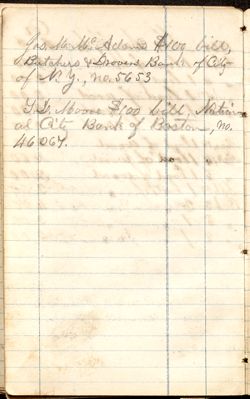 Jas. M. McAdams $100 bill,
Butchers & Drovers Bank of City
of N.Y., no. 5653
Moore $100 bill, Nation
al City Bank of Boston, no.
46067.